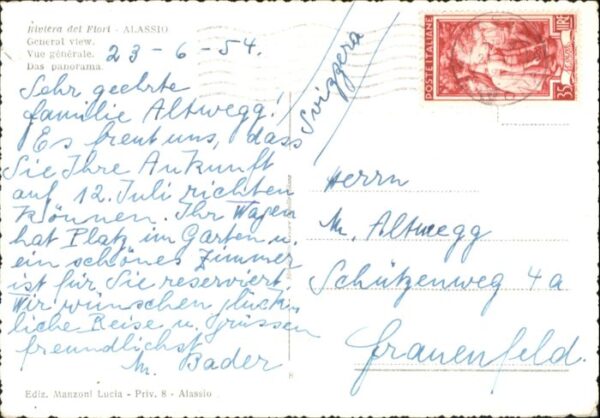 Riviera dei Fiori - ALASSIO
General view.
Vue générale.
Das panorama.
23-6-54.
Sehr geehrte
Familie Altwegg!
Es freut uns, dass
Sie Ihre Ankunft
auf 12. Juli richten
können. Ihr Wagen
hat Platz im Garten u.
ein schönes Zimmer
ist für Sie reserviert.
Wir wünschen glück-
liche Reise u. grüssen
freundlichst
M. Bader
Ediz. Manzoni Lucia - Priv. 8 - Alassio
Svizzera
POSTE ITALIANE
LIRE
35
Herrn
M. Altwegg
Schützenweg 4a
Frauenfeld.